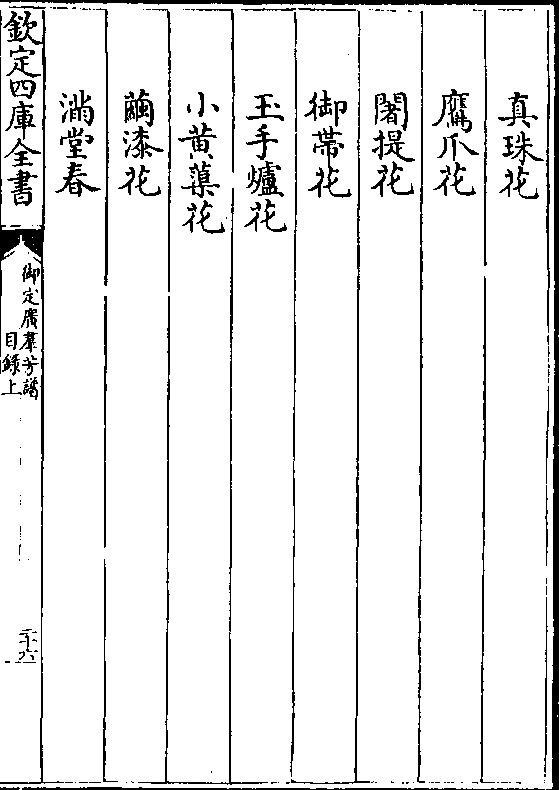 真珠花
鷹爪花
闍提花
御帶花
玉手爐花
小黄蕖花
繭漆花
滿堂春
欽定四庫全書
御定廣羣芳譜
目録上
二十六